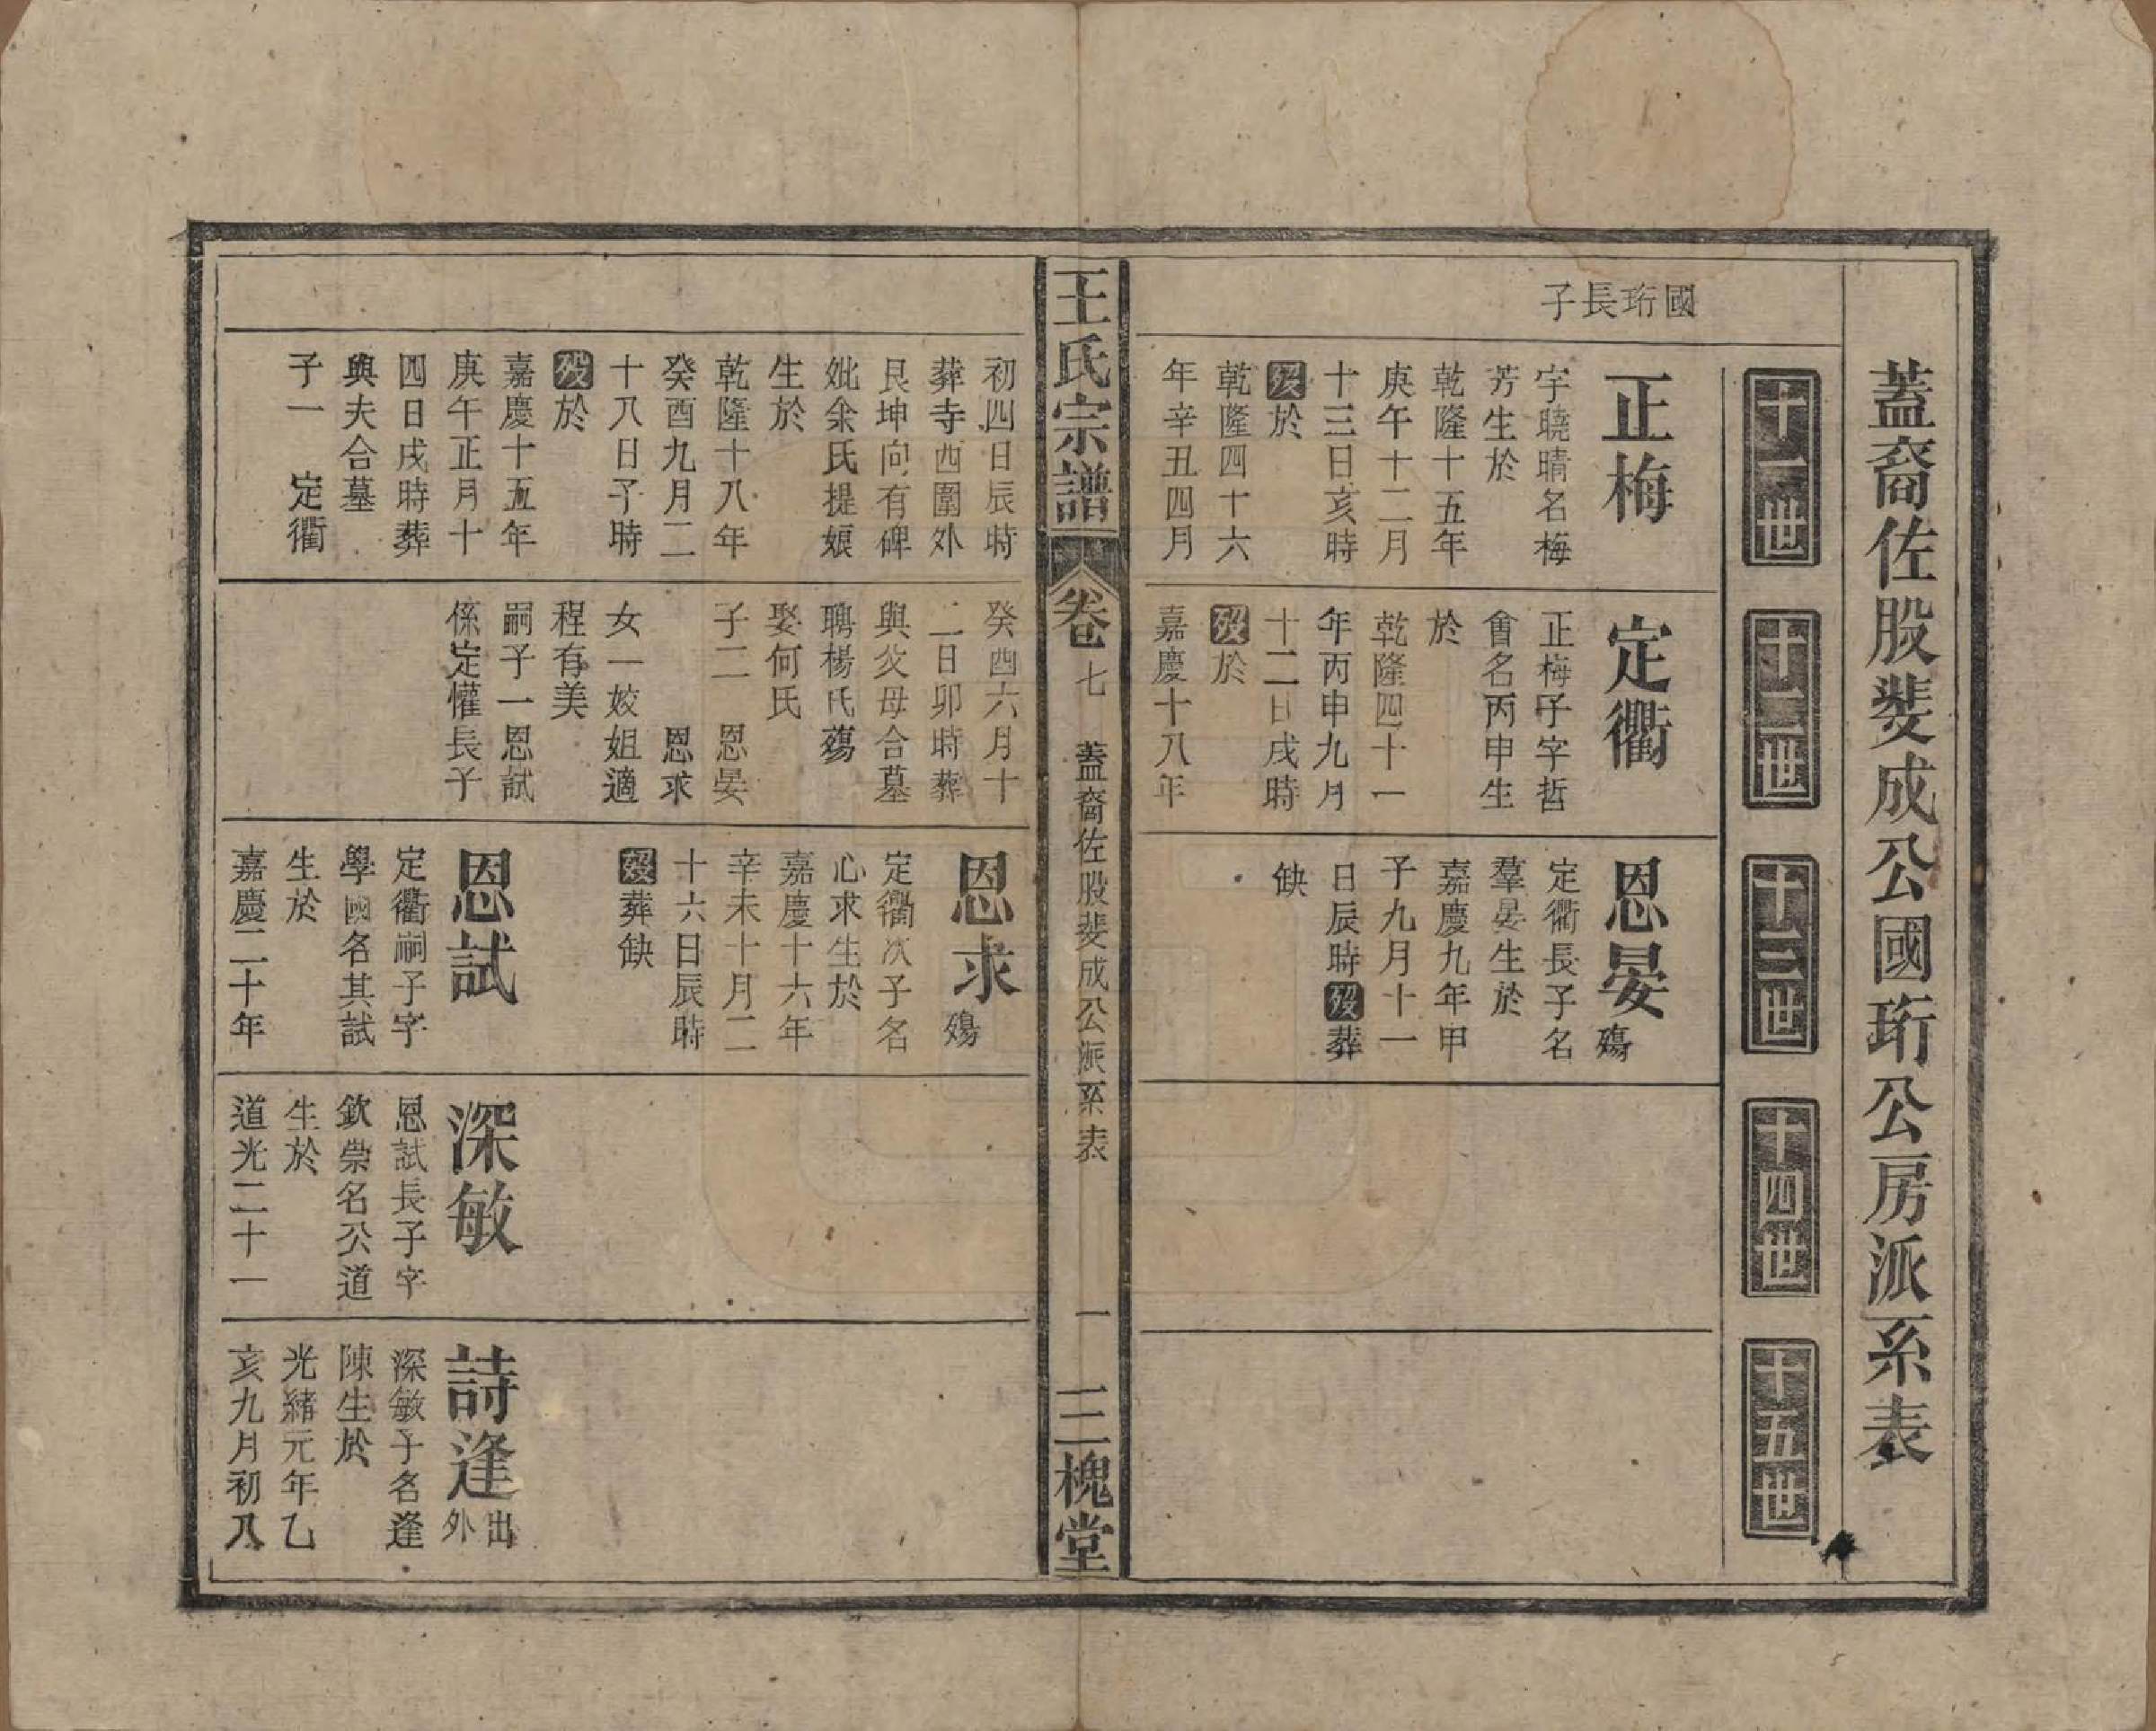 蓋裔佐股斐成公國珩公房派系表
十一世
十二世
十三世
十四世
十五世
國珩長子
正梅
字曉晴名梅
芳生於
乾隆十五年
庚午十二月
十三日亥時
歿於
乾隆四十六
年辛丑四月
定衢
正梅子字哲
會名丙申生
於
乾隆四十一
年丙申九月
十二日戌時
歿於
嘉慶十八年
恩晏殤
定衢長子名
羣晏生於
嘉慶九年甲
子九月十一
日辰時歿葬
缺
王氏宗譜
卷七
蓋裔佐股斐成公派系表
一
三槐堂
初四日辰時
葬寺西圍外
艮坤向有碑
妣余氏提娘
生於
乾隆十八年
癸酉九月二
十八日子時
歿於
嘉慶十五年
庚午正月十
四日戌時葬
與夫合墓
子一 定衢
癸酉六月十
二日卯時葬
與父母合墓
聘楊氏殤
娶何氏
子二 恩晏
恩求
女一姣姐適
程有美
嗣子一恩試
係定懽長子
恩求殤
定衢次子名
心求生於
嘉慶十六年
辛未十月二
十六日辰時
歿葬缺
恩試
定衢嗣子字
學國名其試
生於
嘉慶二十年
深敏
恩試長子字
欽崇名公道
生於
道光二十一
詩逢出外
深敏子名逢
陳生於
光緒元年乙
亥九月初八